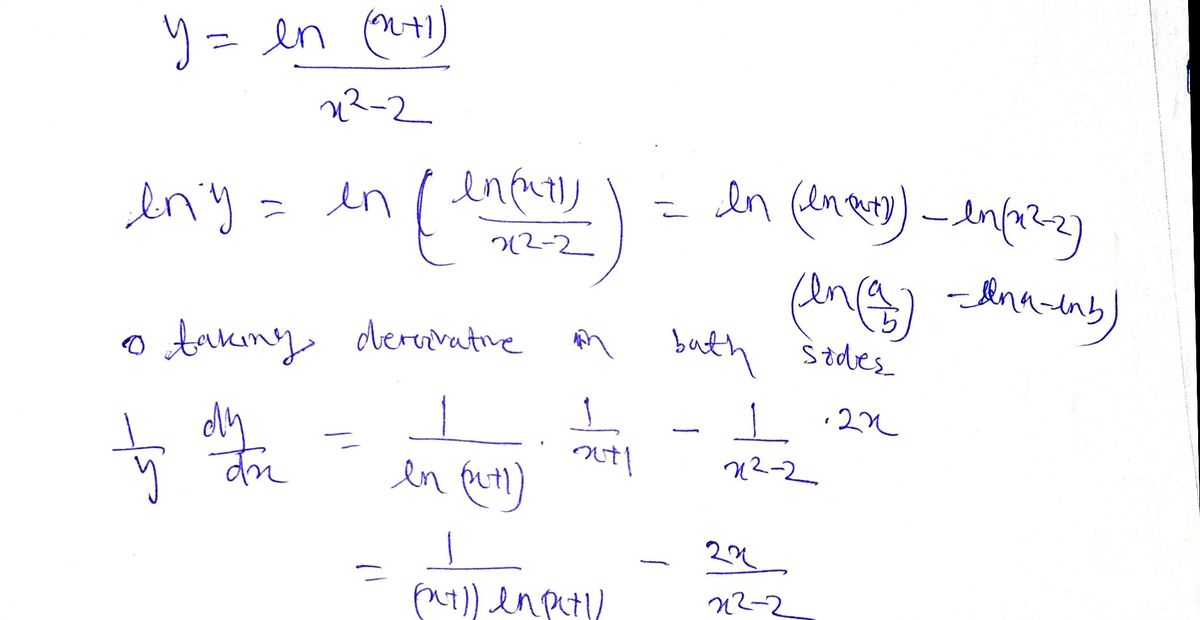 y = ln (x+1) / x²-2
ln y = ln ( ln(x+1) / x²-2 ) = ln (ln(x+1)) - ln(x²-2)
(ln(a/b) = lna-lnb)
taking derivative in both sides
1/y dy/dx = 1/ln (x+1) · 1/x+1 - 1/x²-2 ·2x
= 1/(x+1) ln(x+1) - 2x/x²-2